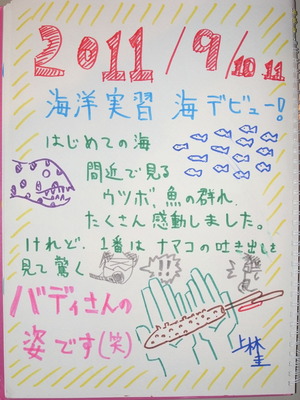 2011/9/10 11
海洋実習 海デビュー!
はじめての海
間近で見る
ウツボ、魚の群れ、
たくさん感動しました。
けれど、1番は ナマコの吐き出しを
見て驚く
!!!
バディさんの
姿です(笑)